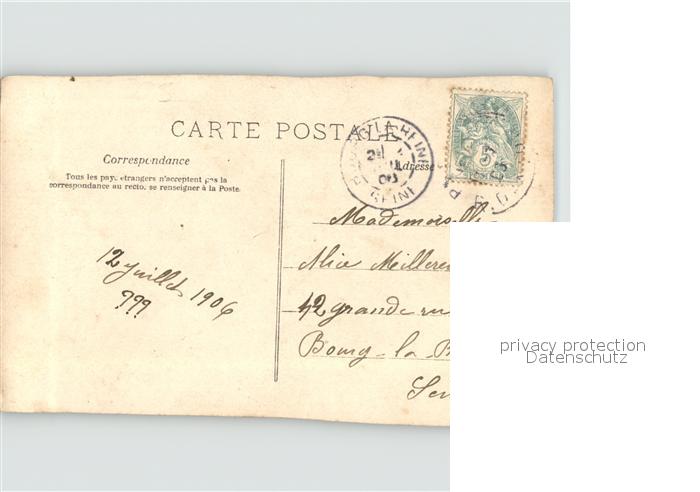 CARTE POSTALE
Correspondance
Adresse
Tous les pays étrangers n'acceptent pas la
correspondance au recto, se renseigner à la Poste.
BOURG-LA-REINE
SEINE
5
Mademois
12 juillet 1906
???
Alice Milleren
42 grande ru
Bourg-la-R
Sei
privacy protection
Datenschutz